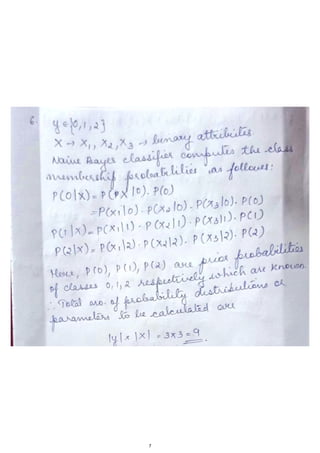 6. y ∈ {0,1,2}
X → X₁, X₂, X₃ → binary attributes.
Naive Bayes classifier computes the class
membership probabilities as follows:
P(0|X) = P(X|0). P(0)
= P(X1|0). P(X2|0). P(X3|0). P(0)
P(1|X) = P(X1|1). P(X2|1). P(X3|1). P(1)
P(2|X) = P(X1|2). P(X2|2). P(X3|2). P(2)
Here, P(0), P(1), P(2) are prior probabilities
of classes 0,1,2 respectively which are known.
∴ Total no. of probability distributions or
parameters to be calculated are
|y| x |X| = 3x3 = 9.